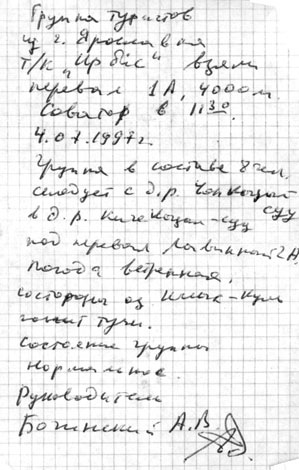 Группа туристов
из г. Ярославля
т/к "Ирбис" взяли
перевал 1А, 4000 м.
в 11 30
4.07.1997 г.
Группа в составе 8 чел.
следует с д.р.
в д.р.
под перевал Лавинный 2А
погода ветренная,
со стороны оз. Иссык-Куль
тучи.
состояние группы
нормальное.
Руководитель
А.В.